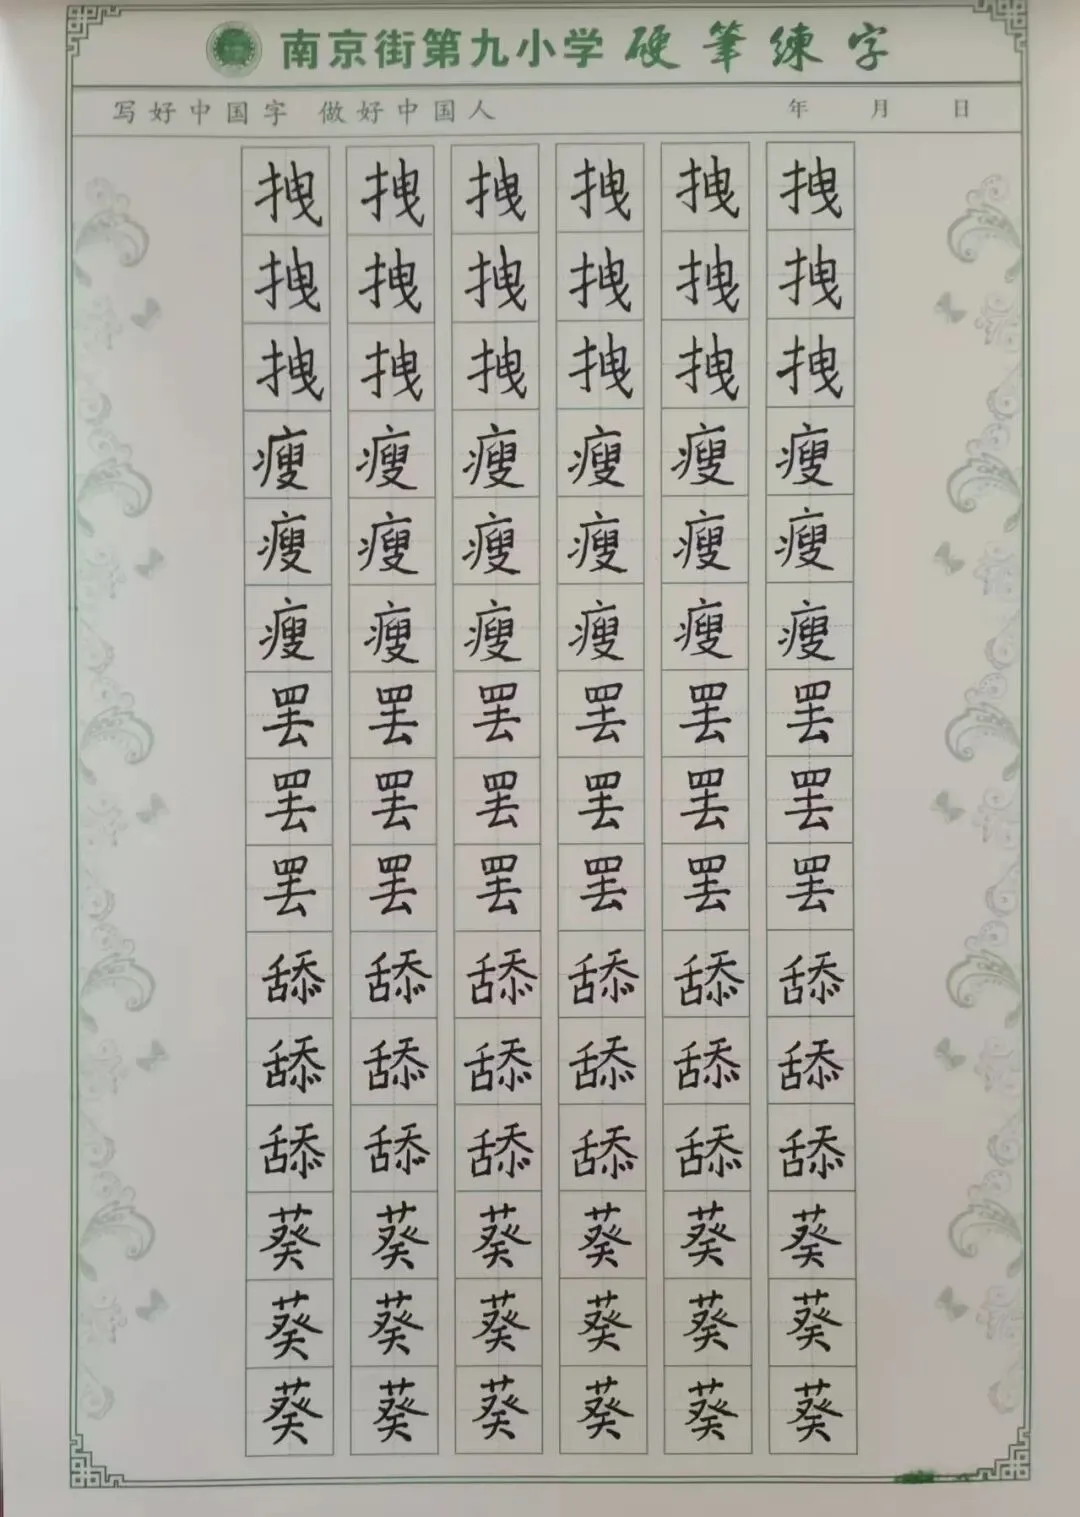 南京街第九小学 硬筆練字
写好中国字 做好中国人 年 月 日
拽 拽 拽 拽 拽 拽
拽 拽 拽 拽 拽 拽
拽 拽 拽 拽 拽 拽
瘦 瘦 瘦 瘦 瘦 瘦
瘦 瘦 瘦 瘦 瘦 瘦
瘦 瘦 瘦 瘦 瘦 瘦
罢 罢 罢 罢 罢 罢
罢 罢 罢 罢 罢 罢
罢 罢 罢 罢 罢 罢
舔 舔 舔 舔 舔 舔
舔 舔 舔 舔 舔 舔
舔 舔 舔 舔 舔 舔
葵 葵 葵 葵 葵 葵
葵 葵 葵 葵 葵 葵
葵 葵 葵 葵 葵 葵